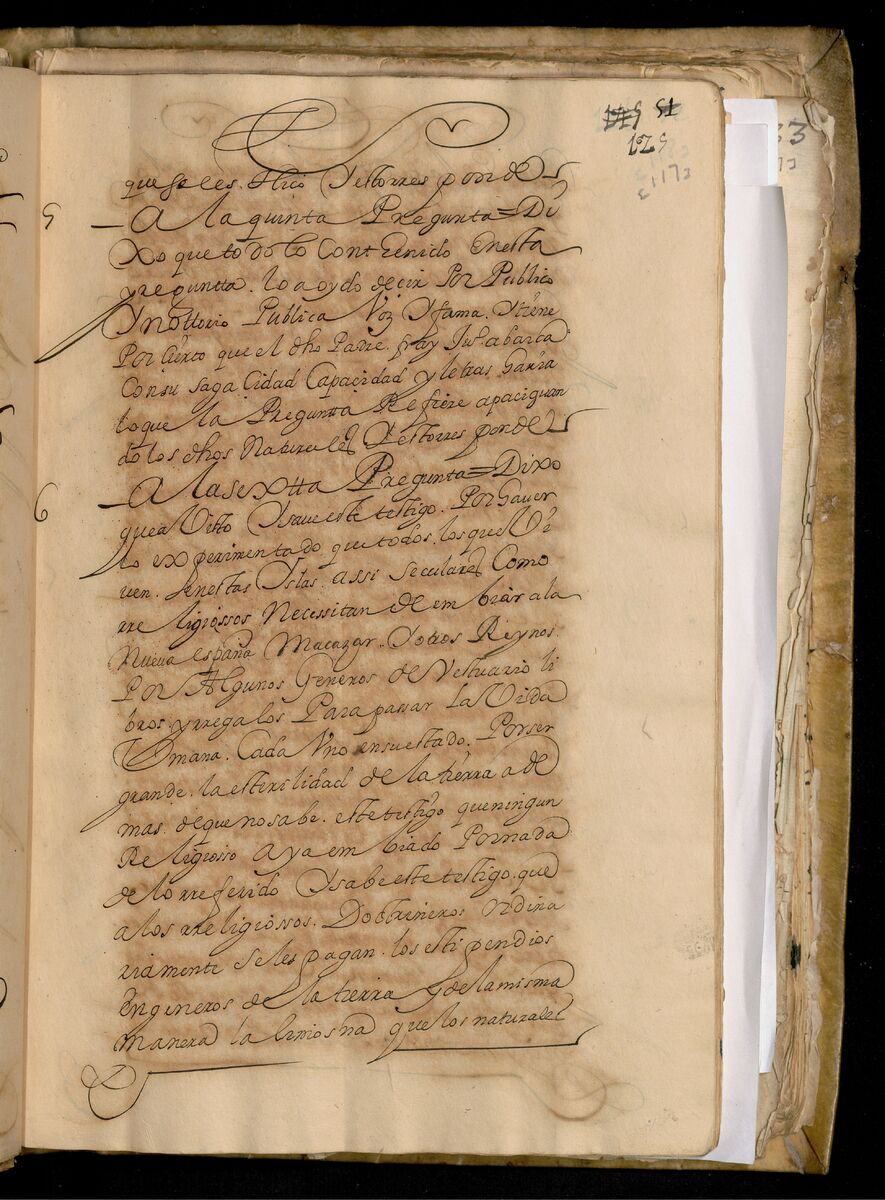 51
125
que se les. Hico Y esto rresponde
5
A la quinta Pregunta = Di
Xo que todo lo Contenido En esta
preguntta. lo a oydo decir Por Publico
Y nottorio Publica Voz Y fama. Y tiene
Por Cierto que el dho Padre. fray Ju.º abarca
Con su saga Cidad Capacidad y letras haria
lo que la Pregunta Refiere apaciguan
do los dhos Naturales Y esto rresponde
6
A la sextta Pregunta = Dixo
que a Visto Y saue este testigo. Por hauer
lo experimentado que todos. los que Vi
uen. En estas Yslas. assi seculares Como
rreligiossos Necessitan de embiar a la
Nueua españa Macazar. Y otros Reynos.
Por Algunos Generos de Vestuario li
bros. y rregalos Para passar La Vida
Vmana. Cada Vno en su estado. Por ser
grande. la esterilidad de la tierra a de
mas. de que no sabe. este testigo que ningun
Religiosso aya embiado Por nada
de lo rreferido Y sabe este testigo. que
a los rreligiossos. Doctrineros ordina
riamente se les pagan. los estipendios
En generos de la tierra Y de la misma
manera la limosna que los naturales